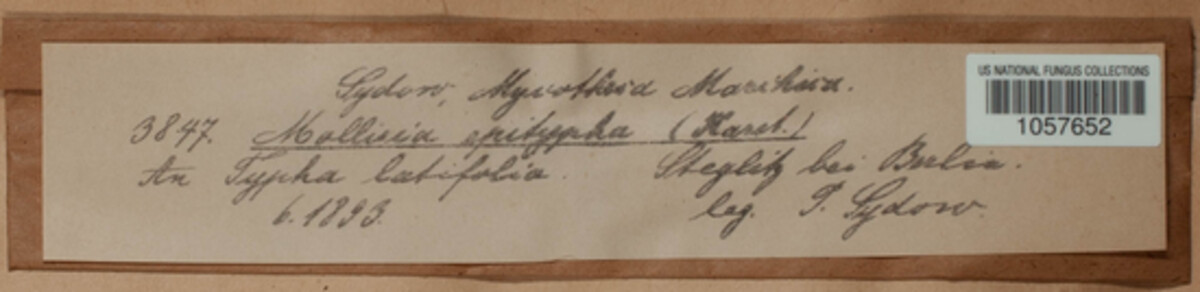 Sydow, Mycotheca Marchica.
3847. Mollisia epitypha (Karst.)
An Typha latifolia. Steglitz bei Berlin.
6.1893. leg. P. Sydow.
US NATIONAL FUNGUS COLLECTIONS
1057652